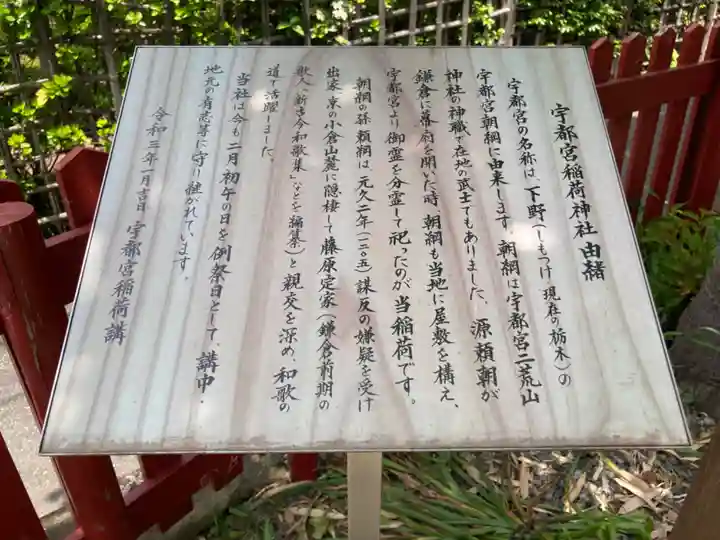 宇都宮稲荷神社 由緒
宇都宮の名称は、下野(しもつけ 現在の栃木)の
宇都宮朝綱に由来します。朝綱は宇都宮二荒山
神社の神職で在地の武士でもありました。源頼朝が
鎌倉に幕府を開いた時、朝綱も当地に屋敷を構え、
宇都宮より御霊を分霊して祀ったのが当稲荷です。
朝綱の孫頼綱は、元久二年(一二〇五)謀反の嫌疑を受け
出家、京の小倉山麓に隠棲して藤原定家(鎌倉前期の
歌人「新古今和歌集」などを編集)と親交を深め、和歌の
道で活躍しました。
当社は今も二月初午の日を例祭日として、講中・
地元の有志等に守り継がれています。
令和三年一月吉日 宇都宮稲荷講